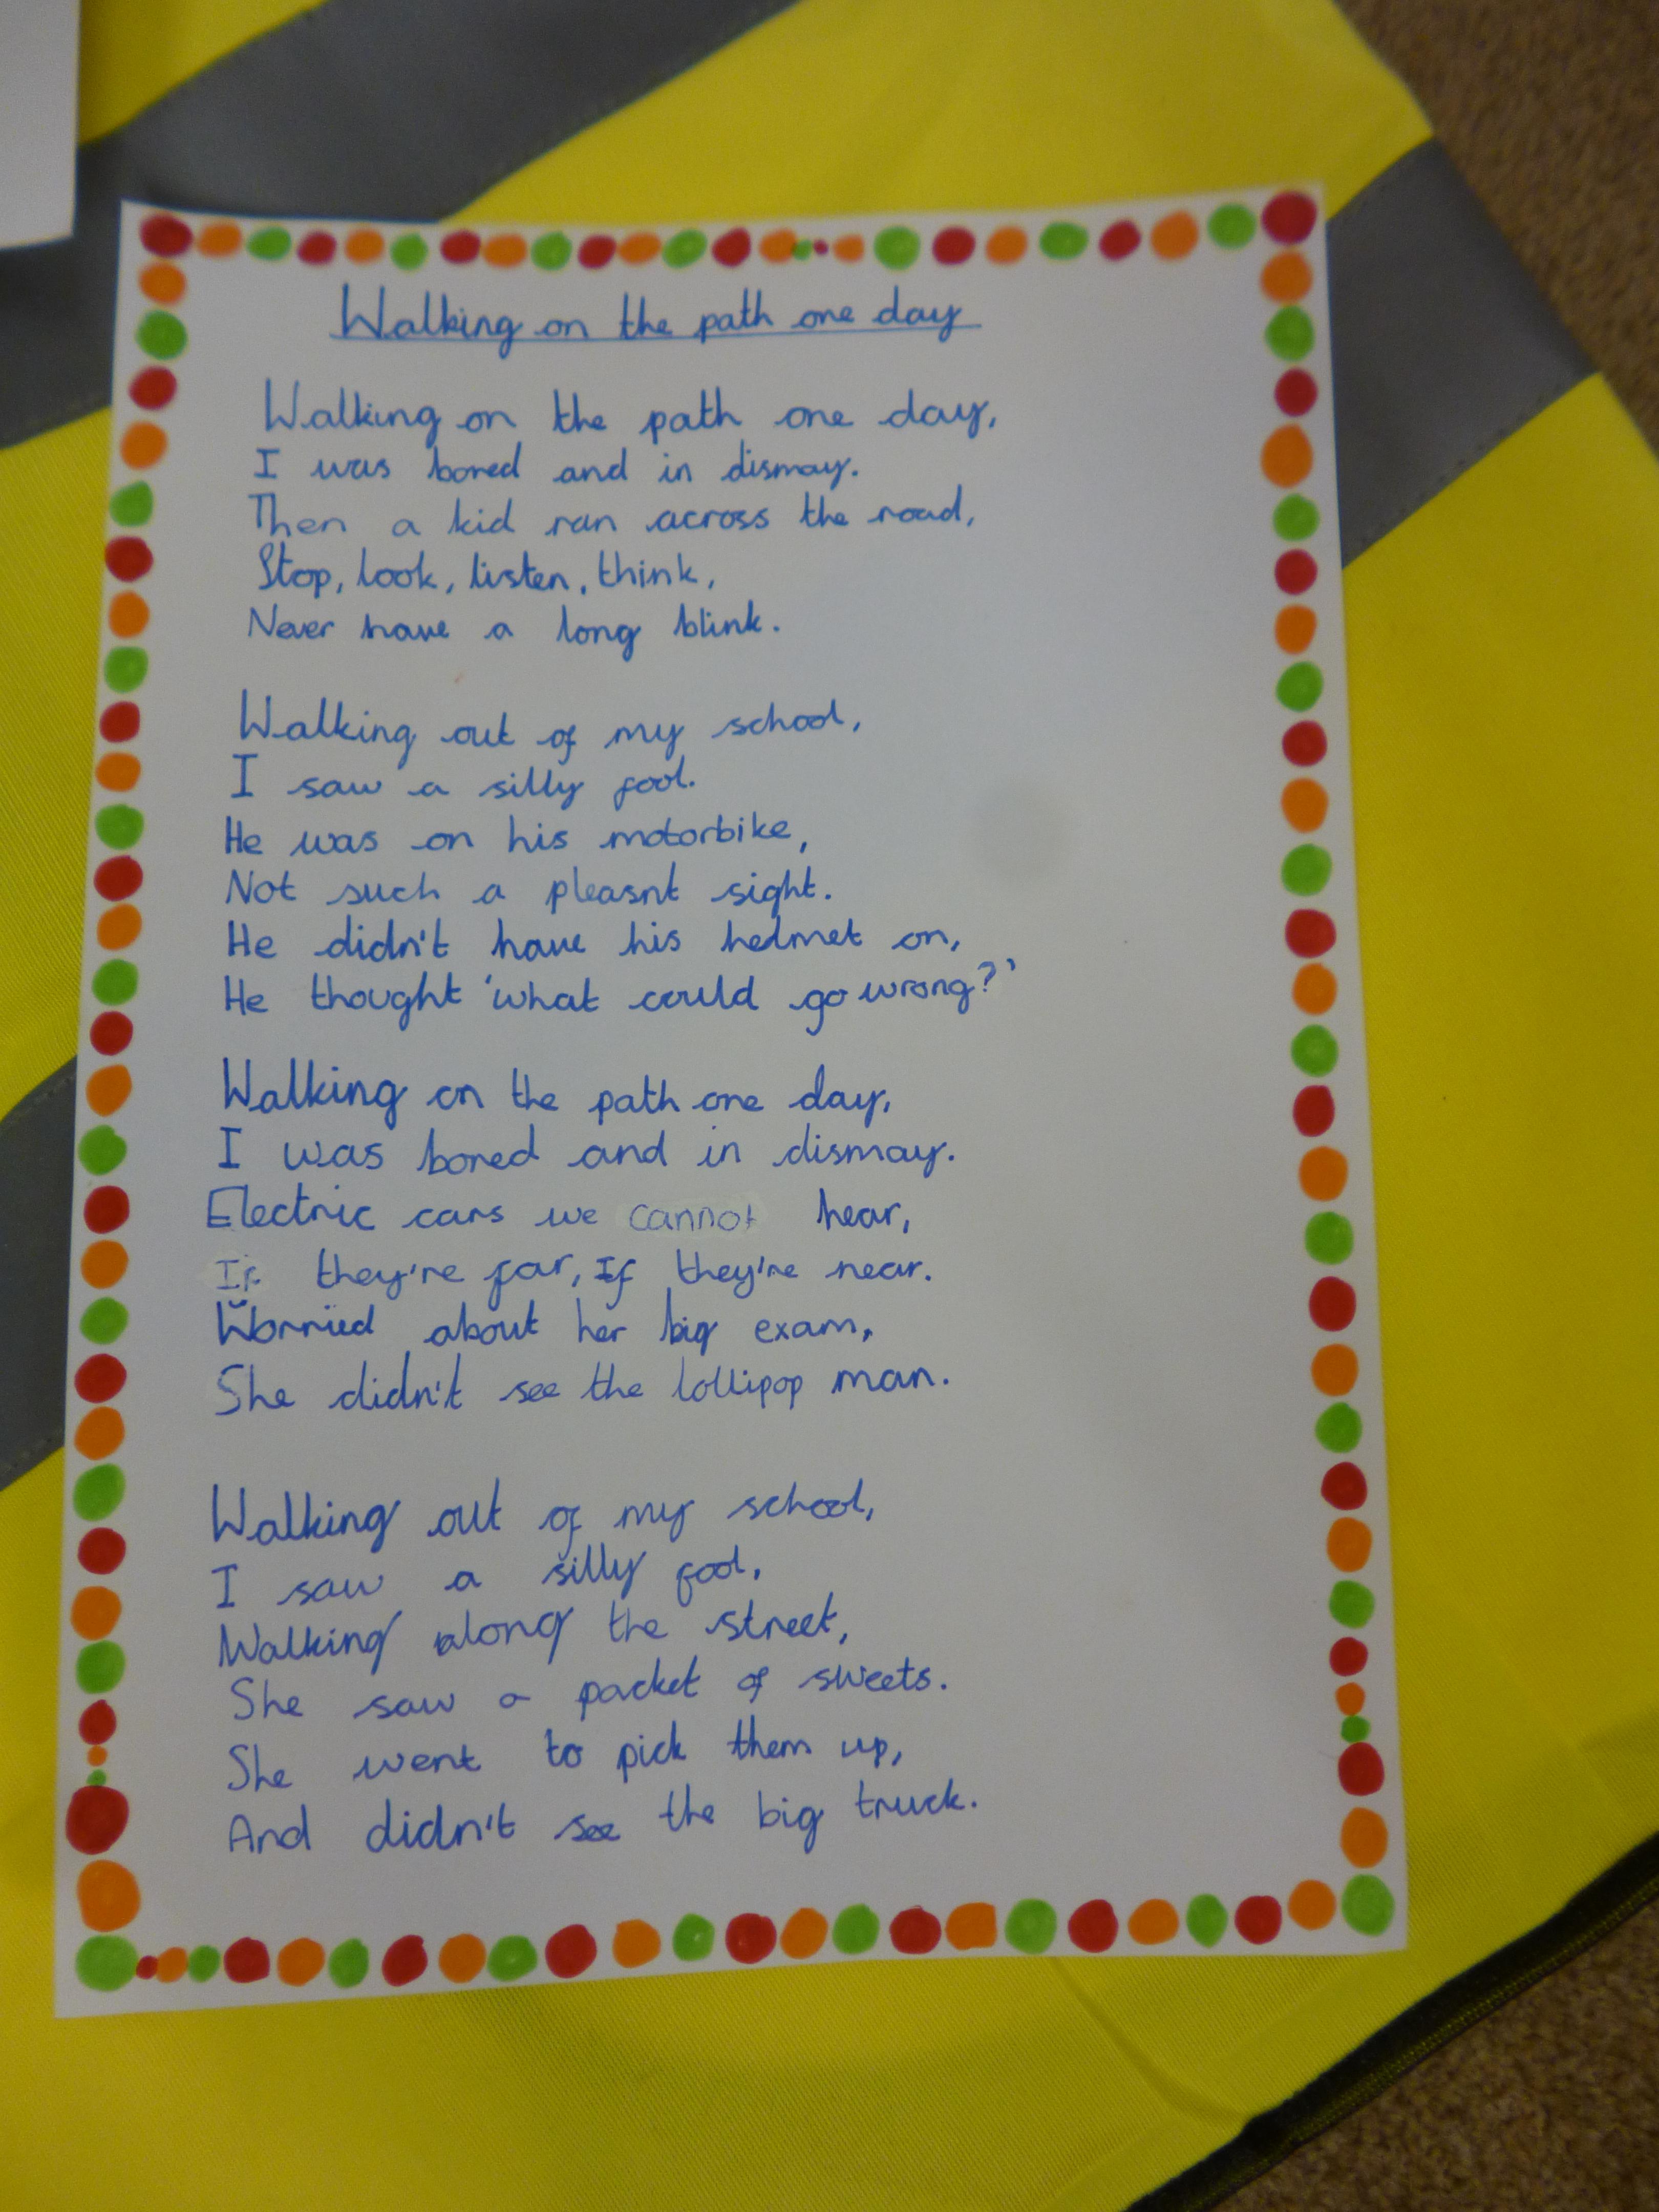 Walking on the path one day
Walking on the path one day,
I was bored and in dismay.
Then a kid ran across the road,
Stop, look, listen, think,
Never have a long blink.
Walking out of my school,
I saw a silly fool.
He was on his motorbike,
Not such a pleasnt sight.
He didn't have his helmet on,
He thought 'what could go wrong?'
Walking on the path one day,
I was bored and in dismay.
Electric cars we cannot hear,
If they're far, If they're near.
Worried about her big exam,
She didn't see the lollipop man.
Walking out of my school,
I saw a silly fool,
Walking along the street,
She saw a packet of sweets.
She went to pick them up,
And didn't see the big truck.